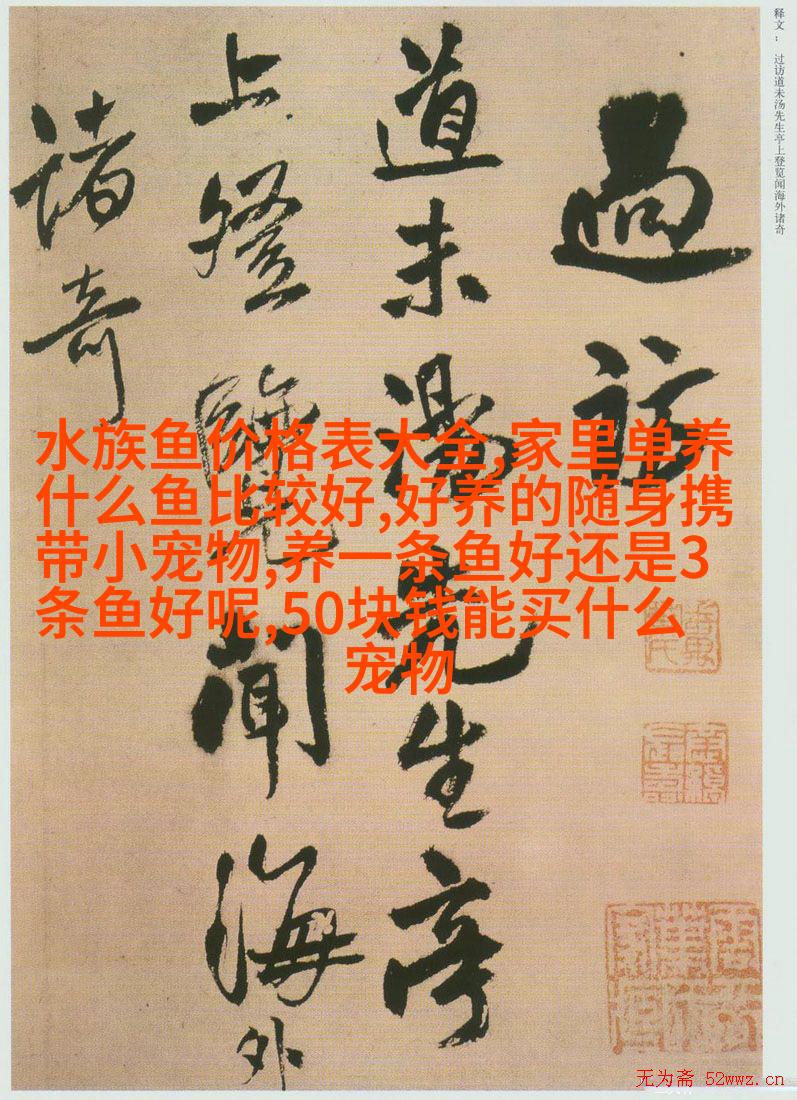 過訪
道未湯先生亭
上登覧聞海外
諸奇
释文： 过访道未汤先生亭上登览闻海外诸奇
水族鱼价格表大全,家里单养
什么鱼比较好,好养的随身携
带小宠物,养一条鱼好还是3
条鱼好呢,50块钱能买什么
宠物
无为斋 52wwz.cn